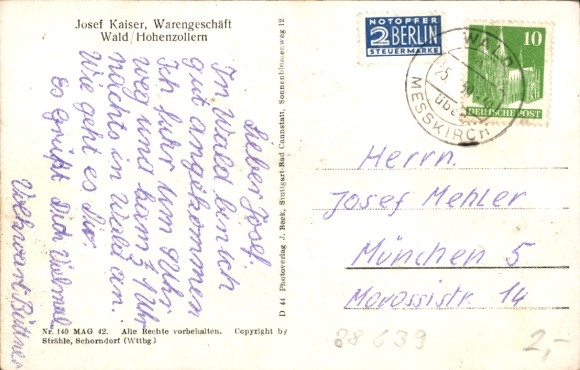 Josef Kaiser, Warengeschäft
Wald/Hohenzollern
Lieber Josef.
In Wald bin ich
gut angekommen
Ich fuhr um 8 Uhr
weg und kam 3/4 1 Uhr
nachts in Wald an.
Wie geht es Dir.
Es grüßt Dich vielmals
Bittner
Nr. 140 MAG 42. Alle Rechte vorbehalten. Copyright by
Strähle, Schorndorf (Wttbg.)
D 44 Photoverlag J. Beck, Stuttgart-Bad Cannstatt, Sonnenblumenweg 12
NOTOPFER
2 BERLIN
STEUERMARKE
10
DEUTSCHE POST
WALD
über
MESSKIRCH
Herrn
Josef Mehler
München 5
Morassistr. 14
88639
2,-